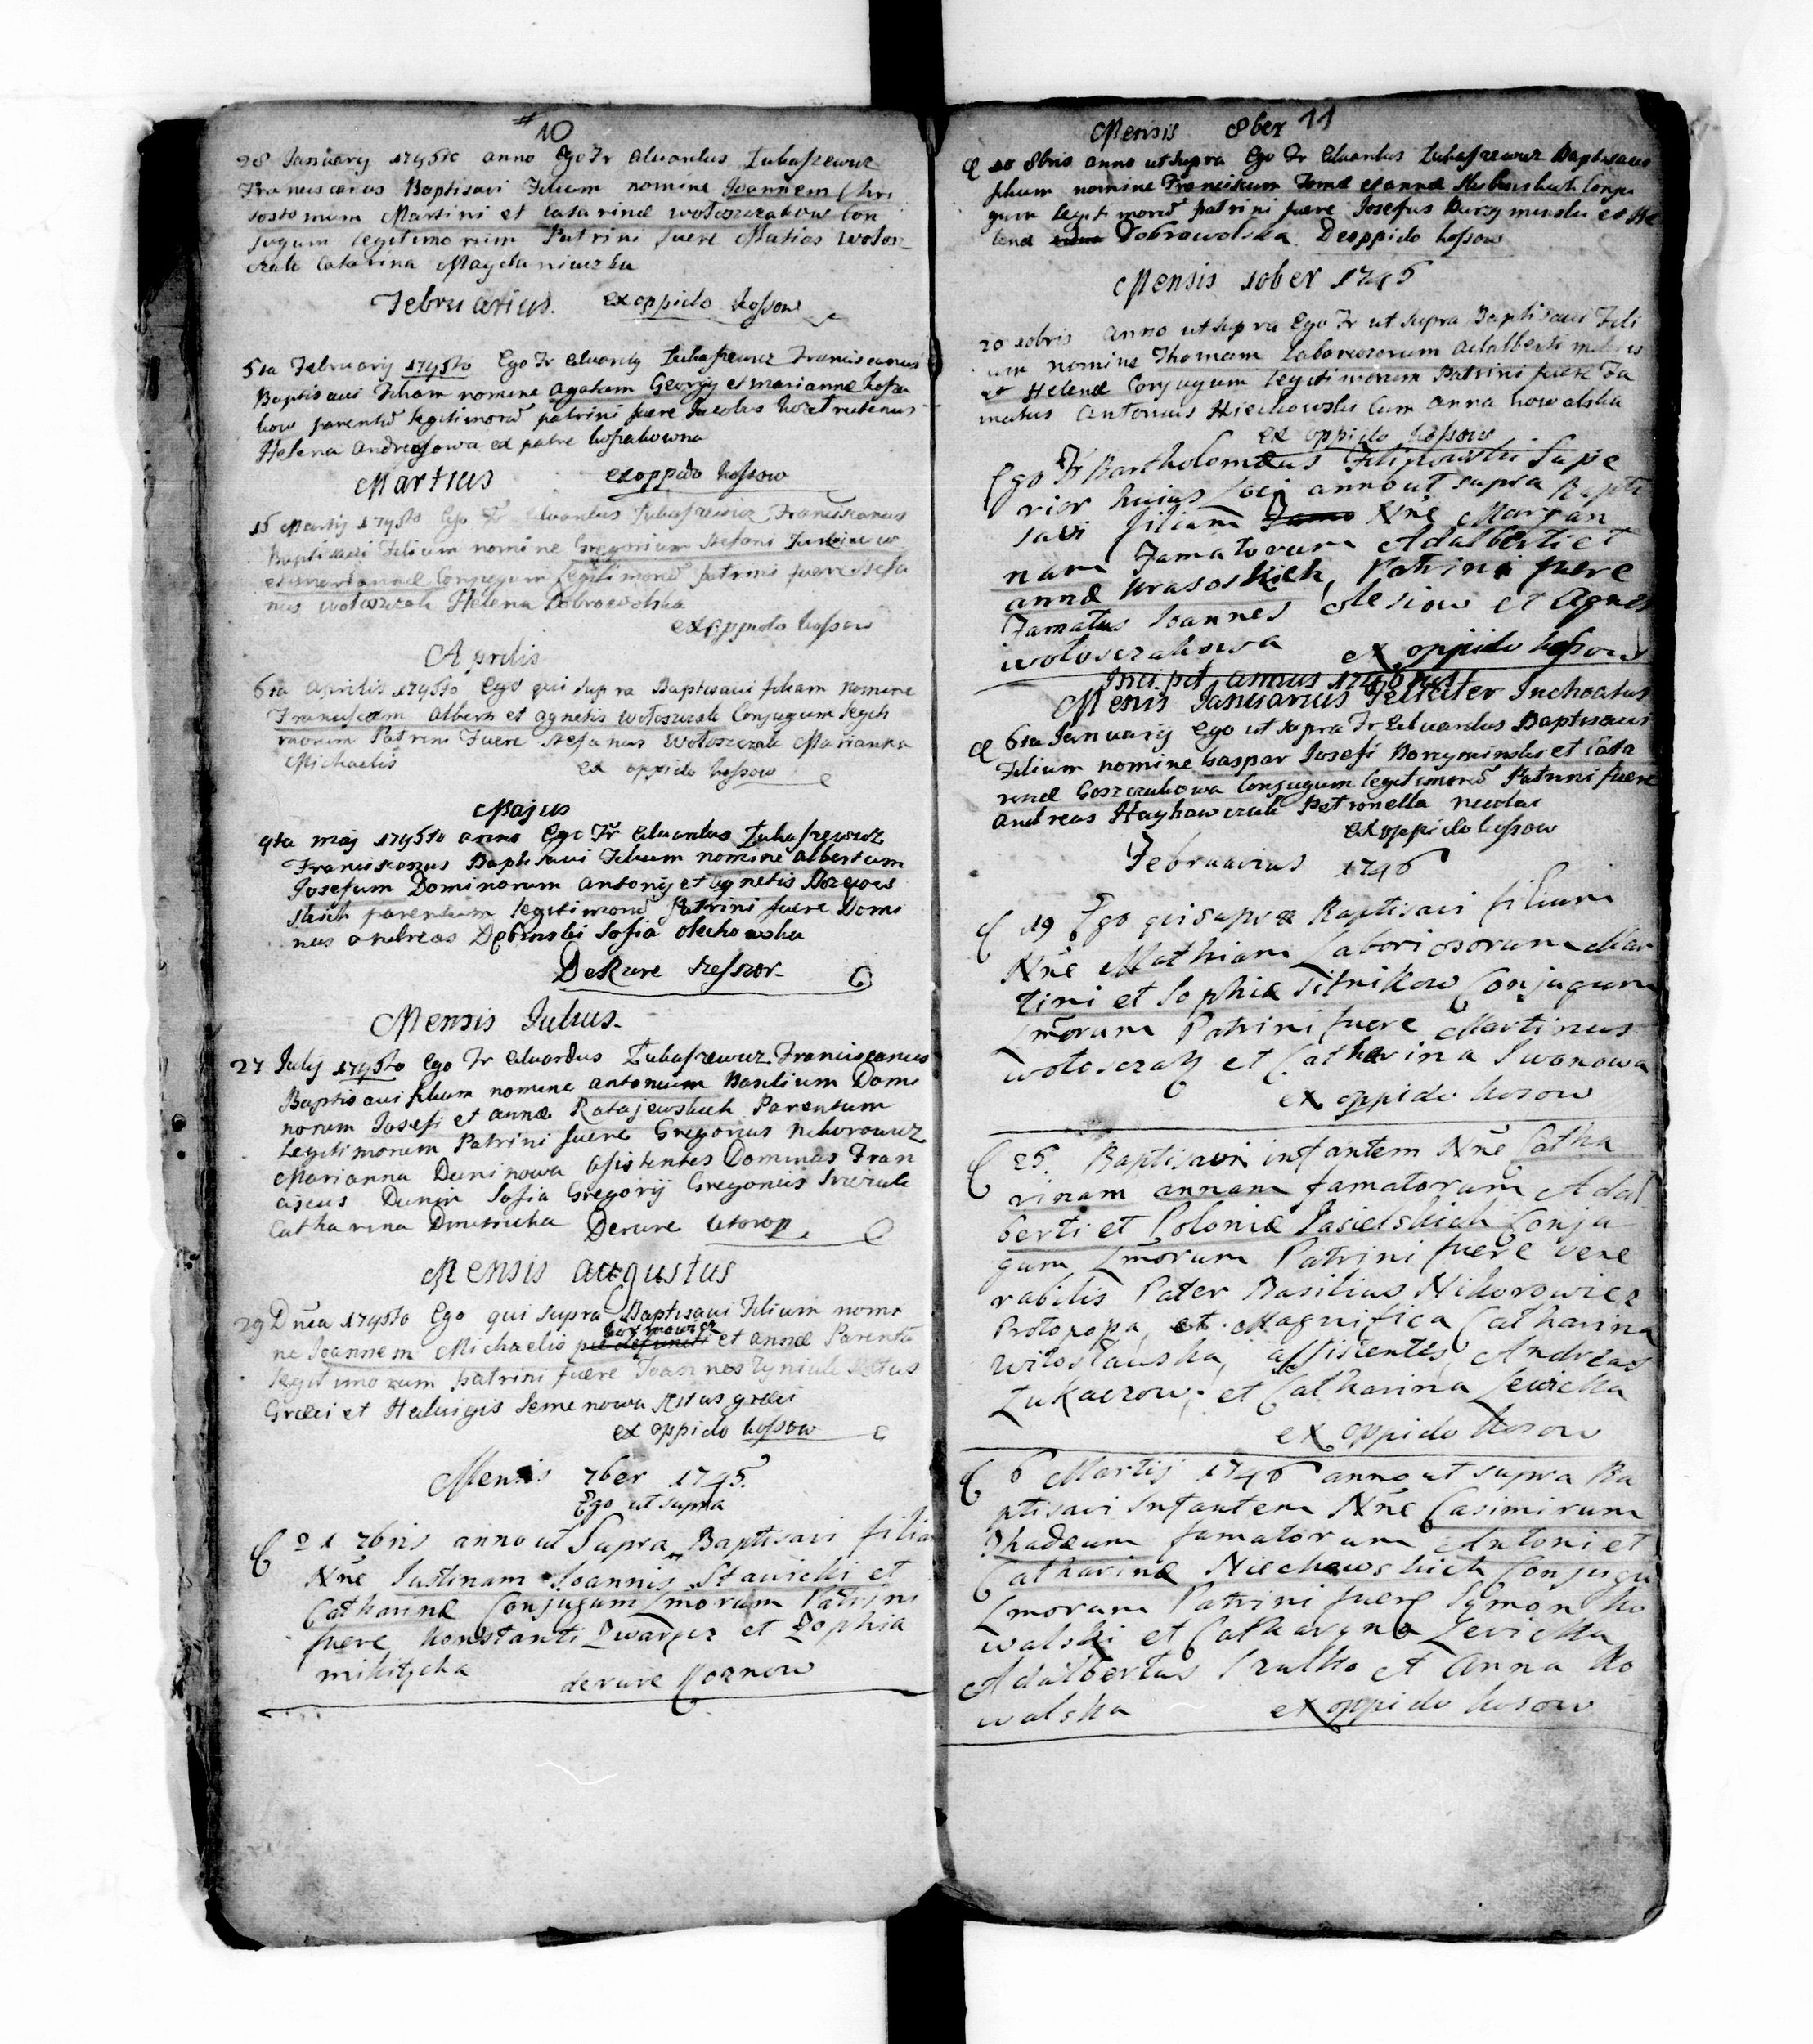 10
28 January 1795to anno Ego Fr Eduardus Łukaszewicz
Franciscanus Baptisavi Filium nomine Joannem Chri
sostomum Martini et Catarinæ Wołoszczakow Con
jugum legitimorum Patrini fuere Matias Wołosz
czak Catarina Maydaniuczka
Februarius. ex oppido Kossow
5ta February 1795to Ego Fr Eduardus Łukaszewicz Franciscanus
Baptisavi Filiam nomine Agatam Georgy et Mariannæ
parentũ legitimorũ patrini fuere Jacobus
Helena ex patre
Martius ex oppido Kossow
15 Martij 1795to Ego Fr Eduardus Łukaszewicz Franciscanus
Baptisavi Filium nomine Gregorium Stefani
et Mariannæ Conjugum legitimorũ patrini fuere Stefa
nus Wołoszczak Helena Dobrowolska
ex oppido Kossow
Aprilis
6ta Aprilis 1795to Ego qui supra Baptisavi filiam nomine
Franciscam Alberti et Agnetis Wołoszczak Conjugum legiti
morum Patrini Fuere Stefanus Wołoszczak Marianna
Michaelis ex oppido Kossow
Majus
9ta maj 1795to anno Ego Fr Eduardus Łukaszewicz
Franciscanus Baptisavi Filium nomine Albertum
Josefum Dominorum Antonij et Agnetis
skich parentum legitimorũ Patrini fuere Domi
nus Andreas Dębinski Sofia Olechowska
De Rure
Mensis Julius.
27 Julij 1795to Ego Fr Eduardus Łukaszewicz Franciscanus
Baptisavi filium nomine Antonium Basilium Domi
norum Josefi et Annæ Ratajewskich Parentum
Legitimorum Patrini fuere Gregorius Nikorowicz
Marianna Duninowa Asistentes Dominus Fran
ciscus Dunin Sofia Gregorij Gregorius
Catharina Dmitricha De rure Utorop
Mensis Augustus
29 Dnia 1795to Ego qui supra Baptisavi Filium nomi
ne Joannem Michaelis et annæ Parentũ
legitimorum patrini fuere Joannes Ritus
Græci et Heduigis Semenowa Ritus græci
ex oppido Kossow
Mensis 7ber 1795.
Ego ut supra
21 7bris anno ut Supra Baptisavi filiam
Nñe Justinam Joannis Stawicki et
Catharinæ Conjugum Lmorum Patrini
fuere Konstanti et Zophia
mikitycha de rure Roznow
Mensis 8ber 11
10 8bris anno ut supra Ego Fr Eduardus Łukaszewicz Baptisavi
filium nomine Franciscum Tomæ et annæ Conju
gum legitimorũ patrini fuere Josefus Burzyminski et He
lena Dobrowolska De oppido Kossow
Mensis 10ber 1795
20 10bris anno ut supra Ego Fr ut supra Baptisavi Fili
um nomine Thomam Laboriosorum Adalberti
et Helenæ Conjugum legitimorum Patrini fuere Fa
matus Antonius Niechowski Cum Anna Kowalska
ex oppido Kossow
Ego Fr Bartholomæus Filipowski Supe
rior hujus Loci anno ut supra Bapti
savi filiam Nñe Marian
nam Famatorum Adalberti et
annæ Krasoskich, Patrini fuere
Famatus Joannes Olesiow et Agnes
Wołoszczakowa ex oppido Kossow
Incipit annus 1796tus
Mensis Januarius Feliciter Inchoatus
6ta January Ego ut supra Fr Eduardus Baptisavi
Filium nomine Kaspar Josefi Borzyminski et Cata
rinæ Goszczukowa Conjugum legitimorũ Patrini fuere
Andreas Petronella
ex oppido Kossow
Februarius 1796
19 Ego qui supra Baptisavi filium
Nñe Mathiam Laboriosorum Mar
tini et Sophiæ Sitnikow Conjugum
Lmorum Patrini fuere Martinus
Wołoszczak et Catharina Iwanowa
ex oppido Kosow
25. Baptisavi infantem Nñe Catha
rinam annam famatorum Adal
berti et Poloniæ Jasielskich Conju
gum Lmorum Patrini fuere vene
rabilis Pater Basilius Nikorowicz
Protopopa, et Magnifica Catharina
Witosławska, assistentes, Andreas
Łukaczow, et Catharina Lewicka
ex oppido Kosow
6 Martij 1796 anno ut supra Ba
ptisavi Infantem Nñe Casimirum
Thadæum famatorum Antoni et
Catharinæ Niechowskich Conjugũ
Lmorum Patrini fuere Symon Ko
walski et Catharyna Lewicka
Adalbertus et Anna Ko
walska ex oppido Kosow